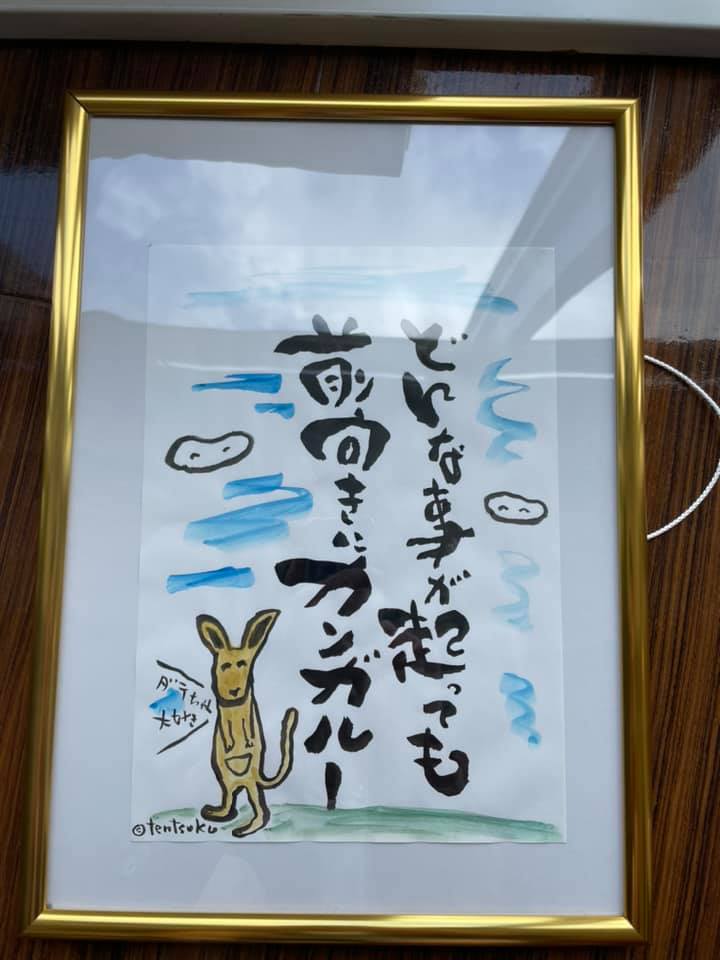 どんな事が起っても
前向きにカンガルー
ダテちゃん
大好き
©tentsuku